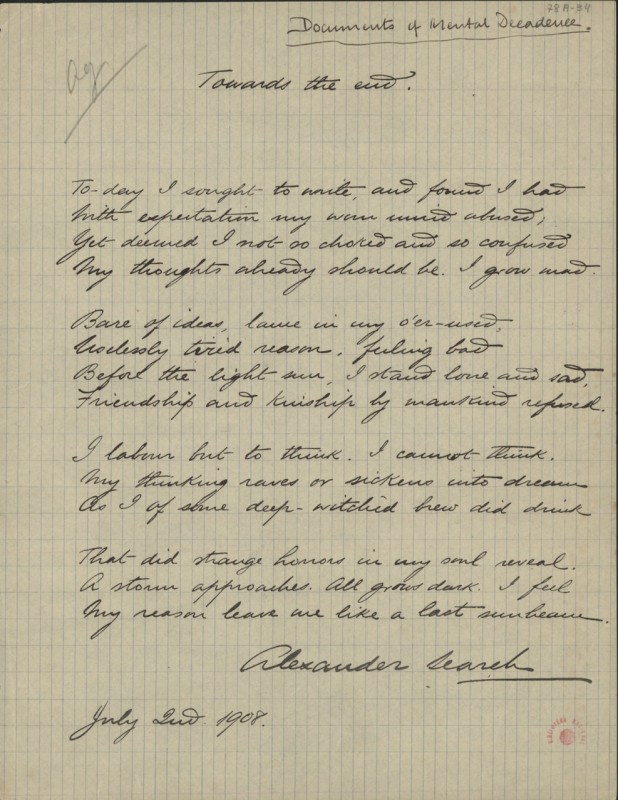 78A-34
Documents of Mental Decadence.
ag
Towards the end.
To-day I sought to write, and found I had
With expectation my worn mind abused;
Yet deemed I not so choked and so confused
My thoughts already should be. I grow mad.
Bare of ideas, lame in my o'er-used,
Uselessly tired reason, feeling bad
Before the light sun, I stand lone and sad,
Friendship and kinship by mankind refused.
I labour but to think. I cannot think.
My thinking raves or sickens into dream
As I of some deep-witchèd brew did drink
That did strange horrors in my soul reveal.
A storm approaches. All grows dark. I feel
My reason leave me like a last sunbeam.
Alexander Search
July 2nd 1908.